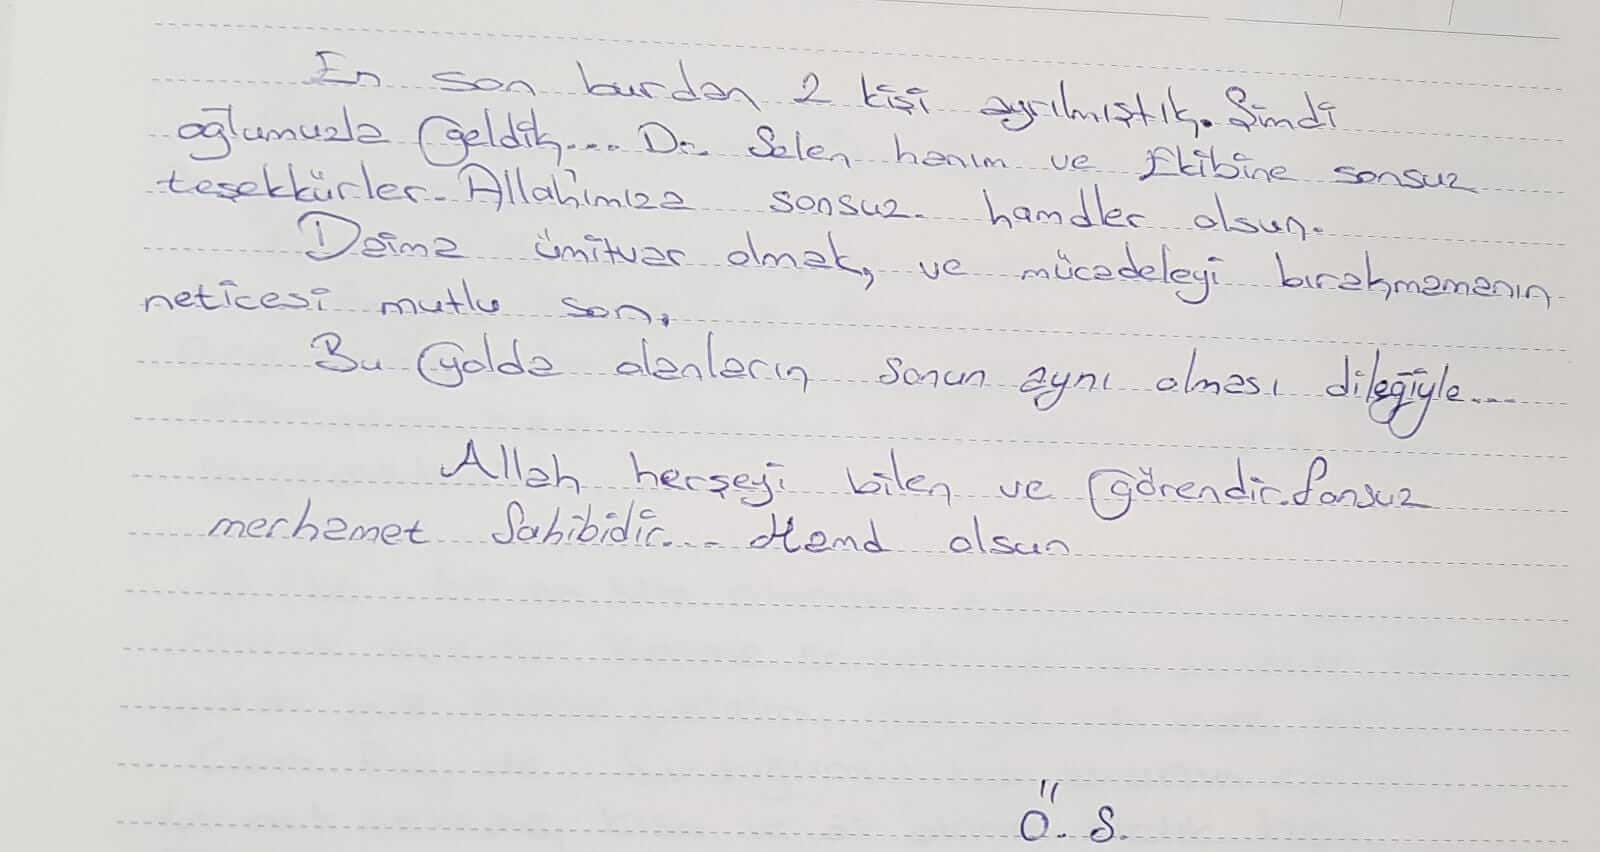 En son burdan 2 kişi ayrılmıştık. Şimdi
oğlumuzla geldik... Dr. Selen hanım ve Ekibine sonsuz
teşekkürler. Allah'ımıza sonsuz hamdler olsun.
Daima ümitvar olmak, ve mücadeleyi bırakmamanın
neticesi mutlu son.
Bu yolda olanların sonun aynı olması dileğiyle...
Allah herşeyi bilen ve görendir. Sonsuz
merhamet Sahibidir... Hamd olsun
Ö. S.